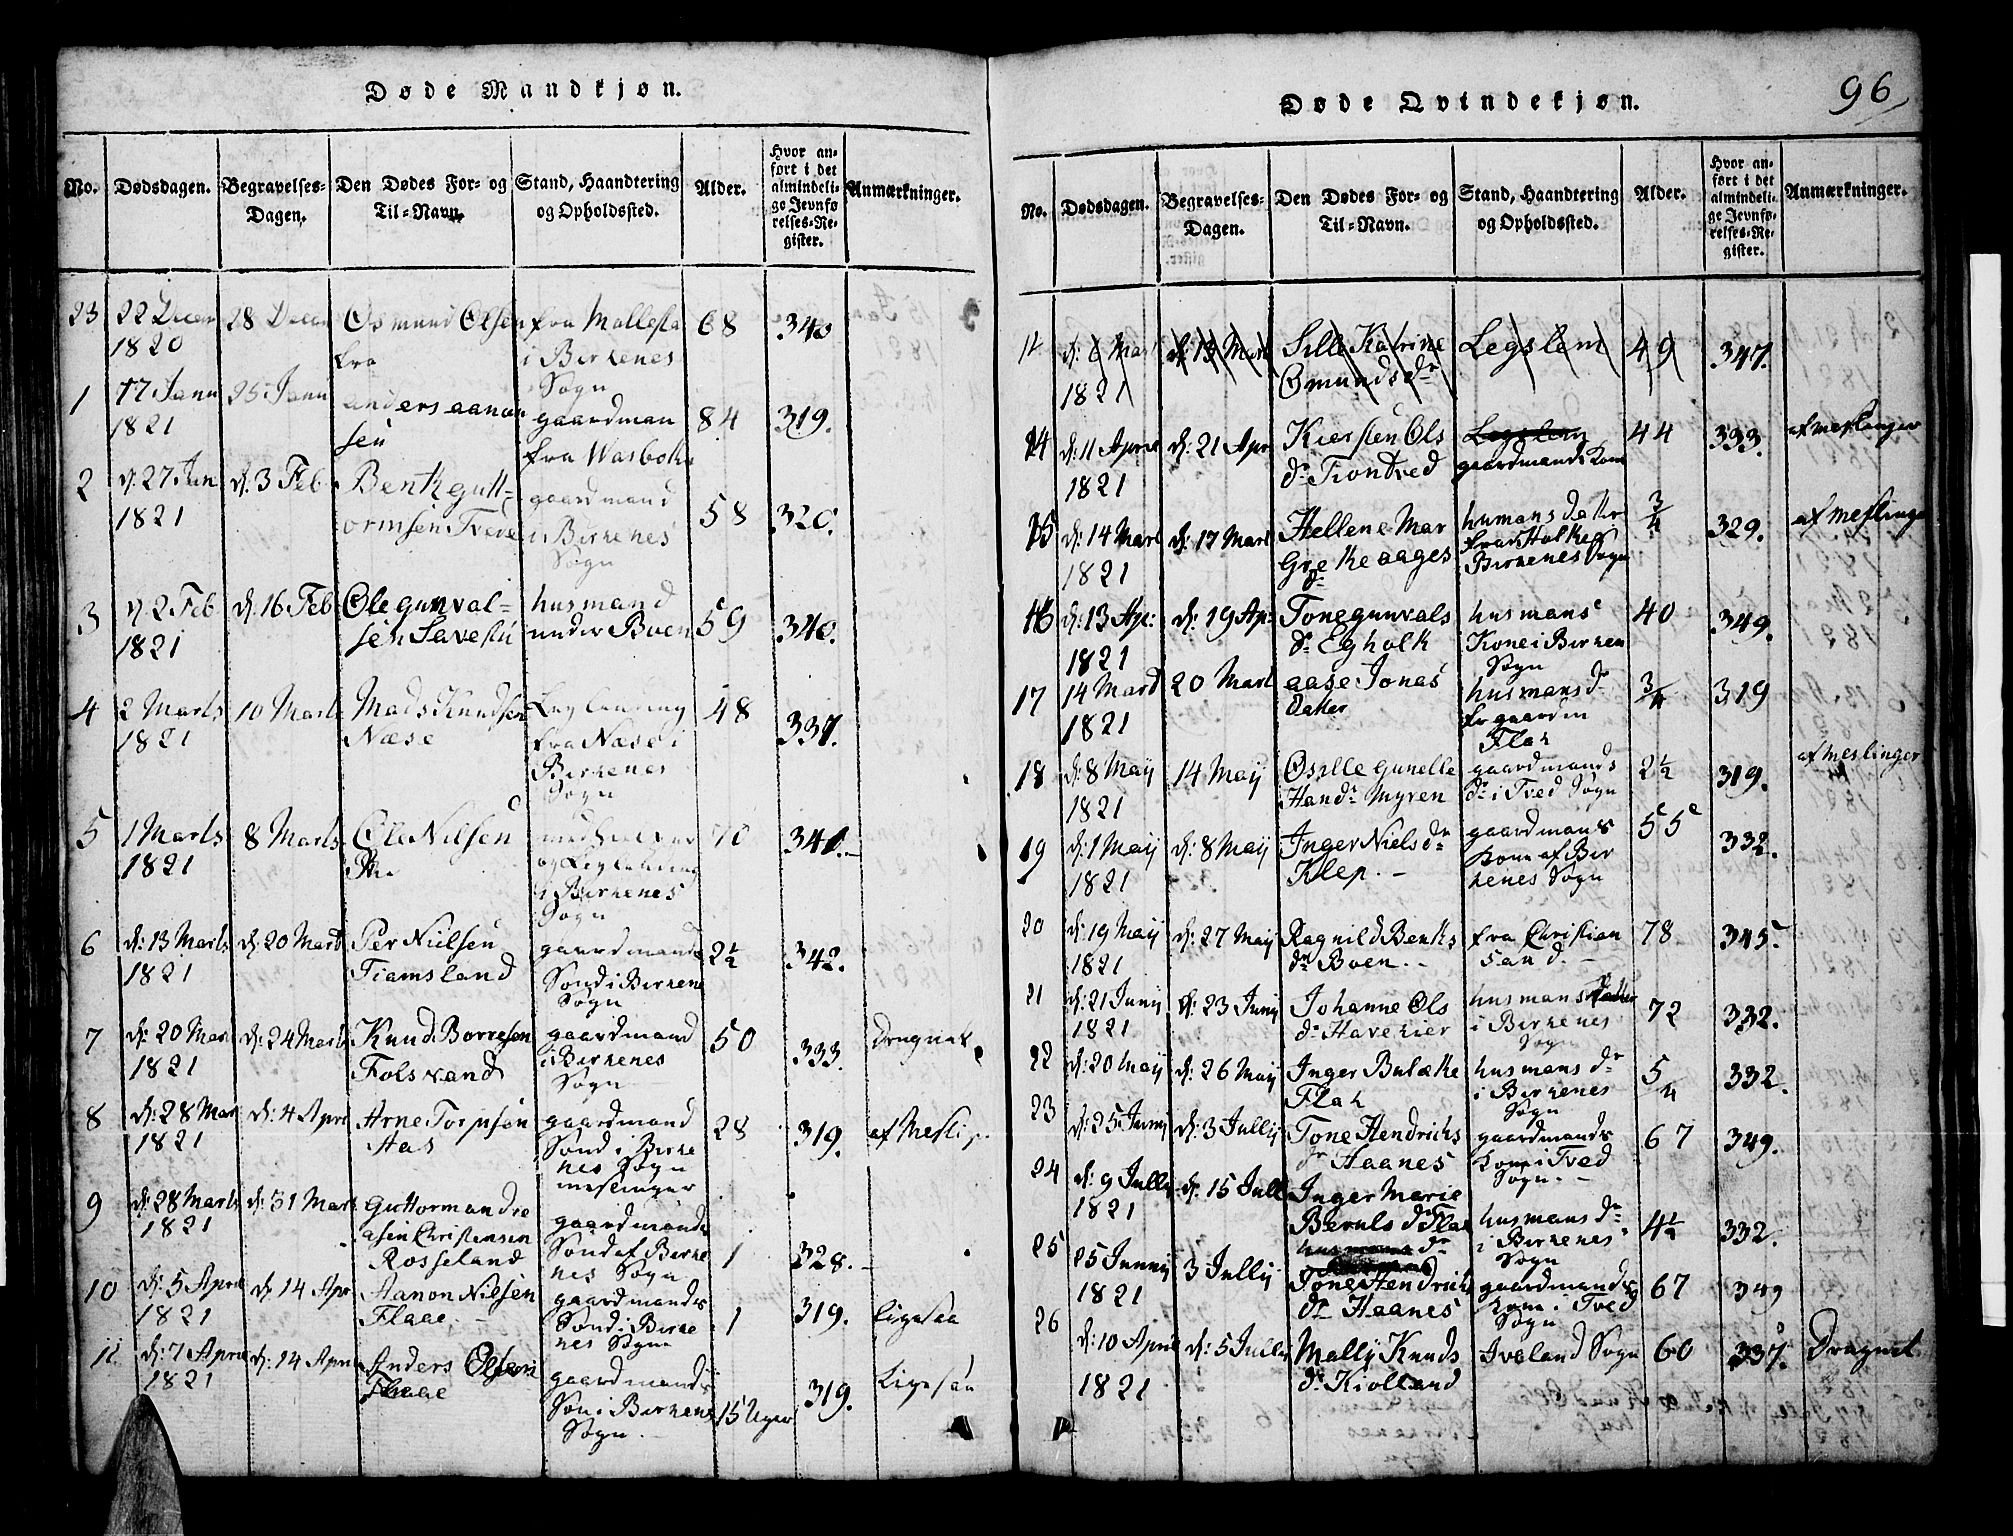 Døde Mandkjøn.
No. Dødsdagen. Begravelses-Dagen. Den Dødes For- og Til-Navn. Stand, Haandtering og Opholdssted. Alder. Hvor anført i det almindelige Jevnførelses-Register. Anmærkninger.
23 22 Decem 1820 28 Decem Osmund Olsen fra fra Mollesta i Birkenes Sogn 68 340
1 17 Janu 1821 25 Janu Anders aanon sen gaardman fra Wasboks 84 319.
2 d. 27 Jan 1821 d. 3 Feb Bent gutt=ormsen Tvede gaardmand i Birkenes Sogn 58 320.
3 d 2 Feb 1821 d. 16 Feb Ole gunval=sen husmand under Boen 59 340.
4 2 Marts 1821 10 Marts Mads Knudsen Næse Leglending fra Næse i Birkenes Sogn 48 337.
5 1 Marts 1821 8 Marts Ole Nilsen og Leglending i Birkenes Sogn 70 341.
6 d: 13 Marts 1821 d: 20 Mart Per Nielsen Tiamsland gaardmands Sønd i Birkenes Sogn 2½ 342.
7 d: 20 Mar 1821 d: 24 Marts Knud Borresen Folsvand gaardmand i Birkenes Sogn 50 333 Dragnet
8 d: 28 Mar 1821 d: 4 Apri Arne Torpsen Aas gaardmand Sønd i Birkenes Sogn meslinger 28 319. af Mesli
9 d: 28 Marts 1821 d: 31 Mart Guttorm andreasen Christensen Rosseland gaardmands Sønd af Birkenes Sogn 1 328.
10 d: 5 April 1821 d: 14 Apr Aanon Nilsen Flaae gaardmands Sønd i Birkenes Sogn 1 319. Ligesaa
11. d: 7 April 1821 d: 14 Apri Anders Olsen Flaae gaardmands Søn i Birkenes Sogn. 15 Uger 319. Ligesaa
Døde Qvindekjøn. 96
No. Dødsdagen. Begravelses-Dagen. Den Dødes For- og Til-Navn. Stand, Haandtering og Opholdssted. Alder. Hvor anført i det almindelige Jevnførelses-Register. Anmærkninger.
d: 8 Mart 1821 d: 13 Mart Sille Katrine Osmundsdr Legslem 49 347.
14 d: 11 April 1821 d: 21 Apr Kiersten Ols dr Trontved Legslem gaardmands Kone 44 333. af meslinger
15 d: 14 Mart 1821 d: 17 Mart Hellene Mar Grete aages dr husmans datter fra Holke Birkenes Sogn ¾ 329. af meslinge
16 d: 13 Ap: 1821 d: 19 Ap: Tone gunvals dr Egholk husmans Kone i Birken Sogn 40 349.
17 14 Mart 1821 20 Mart aase Jonas datter husmans dr fr gaarden Flak ¾ 319
18 d: 8 Maij 1821 14 Maij Osille gunelle Hansdr Myren gaardmands dr i Tved Sogn 2½ 319. af meslinger
19 d: 1 Maij 1821 d: 8 Maij Inger Niels dr Klep. gaardmans Kone af Birkenes Sogn 55 332.
20 d: 19 Maij 1821 d: 27 Maij Ragnild Bents dr Boen. fra Christiansand. 78 345.
21 d: 21 Junij 1821 d: 23 Junij Johanne Ols dr Haverier husmans i Birkenes Sogn 72 332.
22 d: 20 Maij d: 26 Maij Inger Bulæke Flak husmans dr i Birkenes Sogn 5/4 332.
23 d: 25 Junij d: 3 Jullij Tone Hendrichs dr Haanes gaardmands Kone i Tved Sogn. 67 349.
24 d: 9 Jullij 1821 d: 15 Jull Inger Marie Bernts dr Flak husmans dr i Birkenes Sogn 4½ 332.
25 25 Junnij 1821 3 Jullij Tone Hendrich dr Haanes gaardmands Kone i Tved Sogn 67 349
26 d: 10 April 1821 d: 5 Jullij Mallij Knuds dr Kiolland Iveland Sogn 60 337. Dragnet